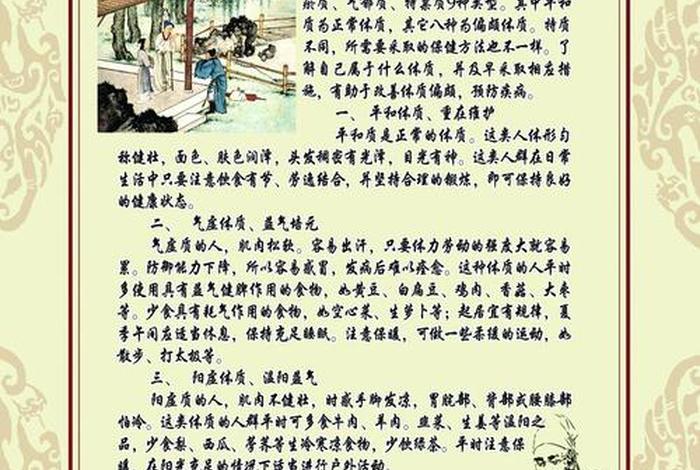 瘀质、气郁质、特禀质9种类型。其中平和
质为正常体质，其它八种为偏颇体质。特质
不同，所需要采取的保健方法也不一样。了
解自己属于什么体质，并及早采取相应措
施，有助于改善体质偏颇，预防疾病。
一、 平和体质、重在维护
平和质是正常的体质。这类人体形匀
称健壮，面色、肤色润泽，头发稠密有光泽，目光有神。这类人群在日常
生活中只要注意饮食有节、劳逸结合，并坚持合理的锻炼，即可保持良好
的健康状态。
二、 气虚体质、益气培元
气虚质的人，肌肉松软。容易出汗，只要体力劳动的强度大就容易
累。防御能力下降，所以容易感冒，发病后难以痊愈。这种体质的人平时
多使用具有益气健脾作用的食物，如黄豆、白扁豆、鸡肉、香菇、大枣
等。少食具有耗气作用的食物，如空心菜、生萝卜等；起居宜有规律，夏
季午间应适当休息，保持充足睡眠。注意保暖，可做一些柔缓的运动，如
散步、打太极等。
三、 阳虚体质、温阳益气
阳虚质的人，肌肉不健壮，时感手脚发凉，胃脘部、背部或腰膝部
怕冷。这类体质的人群平时可多食牛肉、羊肉。韭菜、生姜等温阳之
品，少食梨、西瓜、荸荠等生冷寒凉食物，少饮绿茶。平时注意保
暖，在阳光充足的情况下适当进行户外活动。